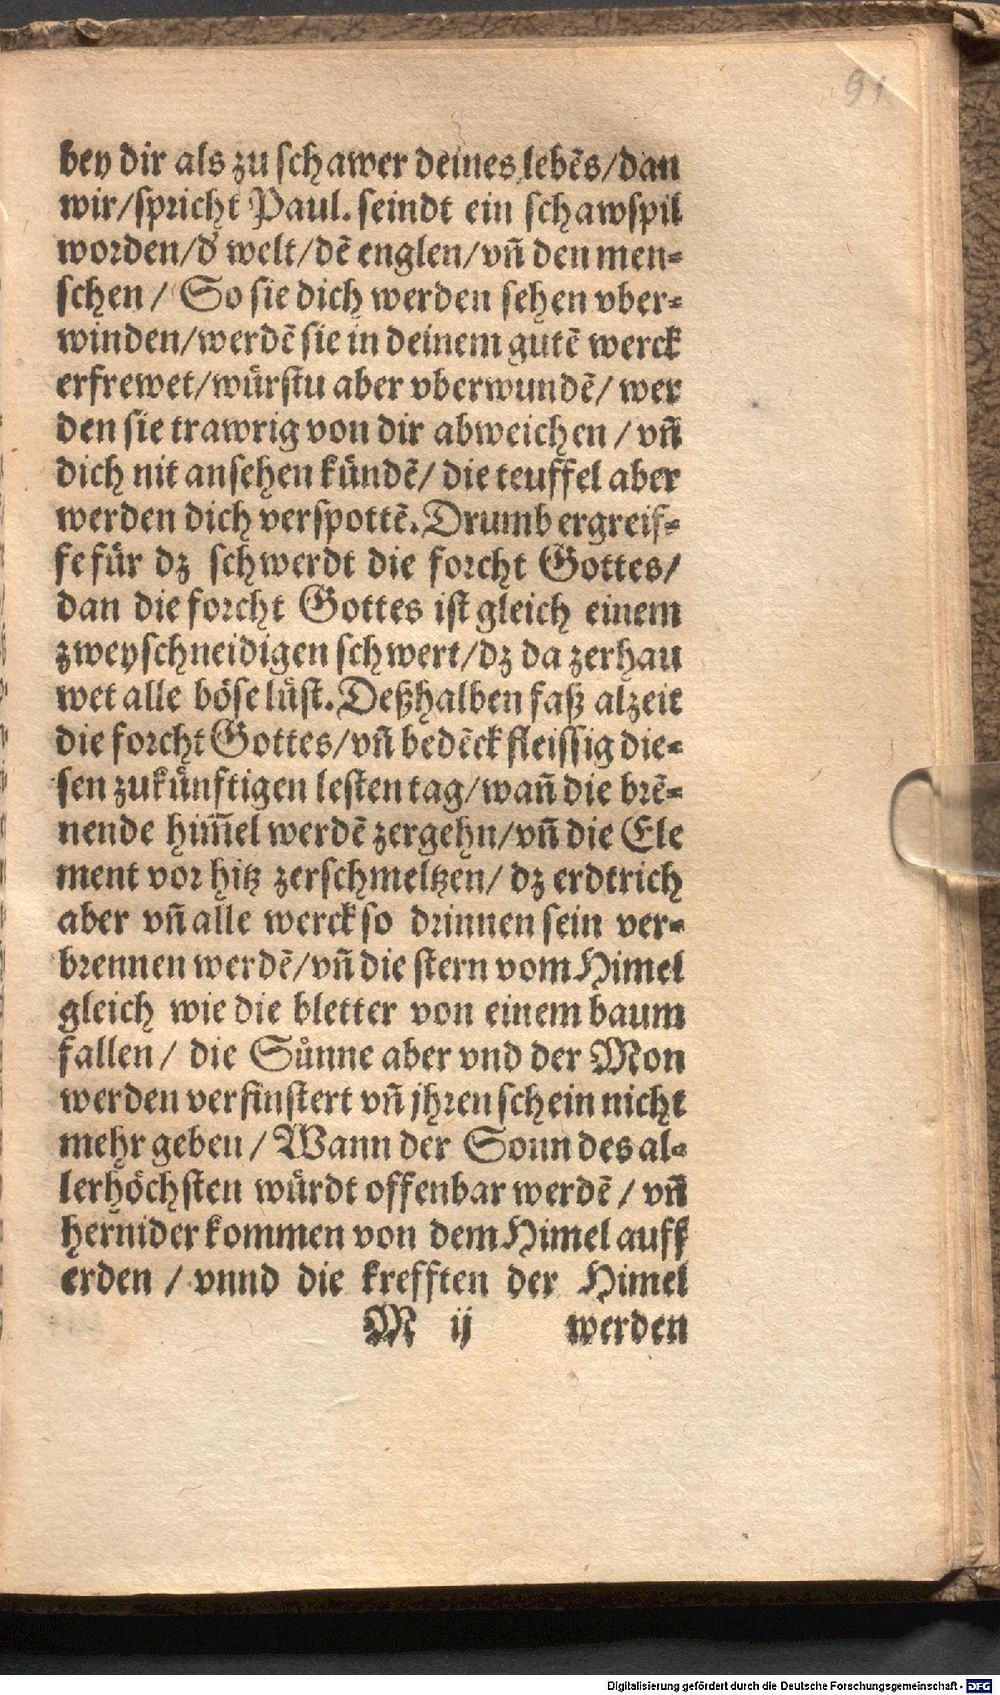 91
bey dir als zu schawer deines lebēs/dan
wir/spricht Paul. seindt ein schawspil
worden/d' welt/dē englen/vn̄ den men⸗
schen/ So sie dich werden sehen vber⸗
winden/werdē sie in deinem gutē werck
erfrewet/würstu aber vberwundē/ wer
den sie trawrig von dir abweichen / vn̄
dich nit ansehen kündē/ die teuffel aber
werden dich verspottē. Drumb ergreif⸗
fe für dz schwerdt die forcht Gottes/
dan die forcht Gottes ist gleich einem
zweyschneidigen schwert/dz da zerhau
wet alle böse lüst. Deßhalben faß alzeit
die forcht Gottes/vn̄ bedēck fleissig die⸗
sen zukünftigen lesten tag/wan̄ die brē⸗
nende him̄el werdē zergehn/vn̄ die Ele
ment vor hitz zerschmeltzen/ dz erdtrich
aber vn̄ alle werck so drinnen sein ver⸗
brennen werdē/vn̄ die stern vom Himel
gleich wie die bletter von einem baum
fallen/ die Sůnne aber vnd der Mon
werden verfinstert vn̄ jhren schein nicht
mehr geben/ Wann der Sonn des al⸗
lerhöchsten würdt offenbar werdē / vn̄
hernider kommen von dem Himel auff
erden / vnnd die krefften der Himel
M ij werden
Digitalisierung gefördert durch die Deutsche Forschungsgemeinschaft - DFG